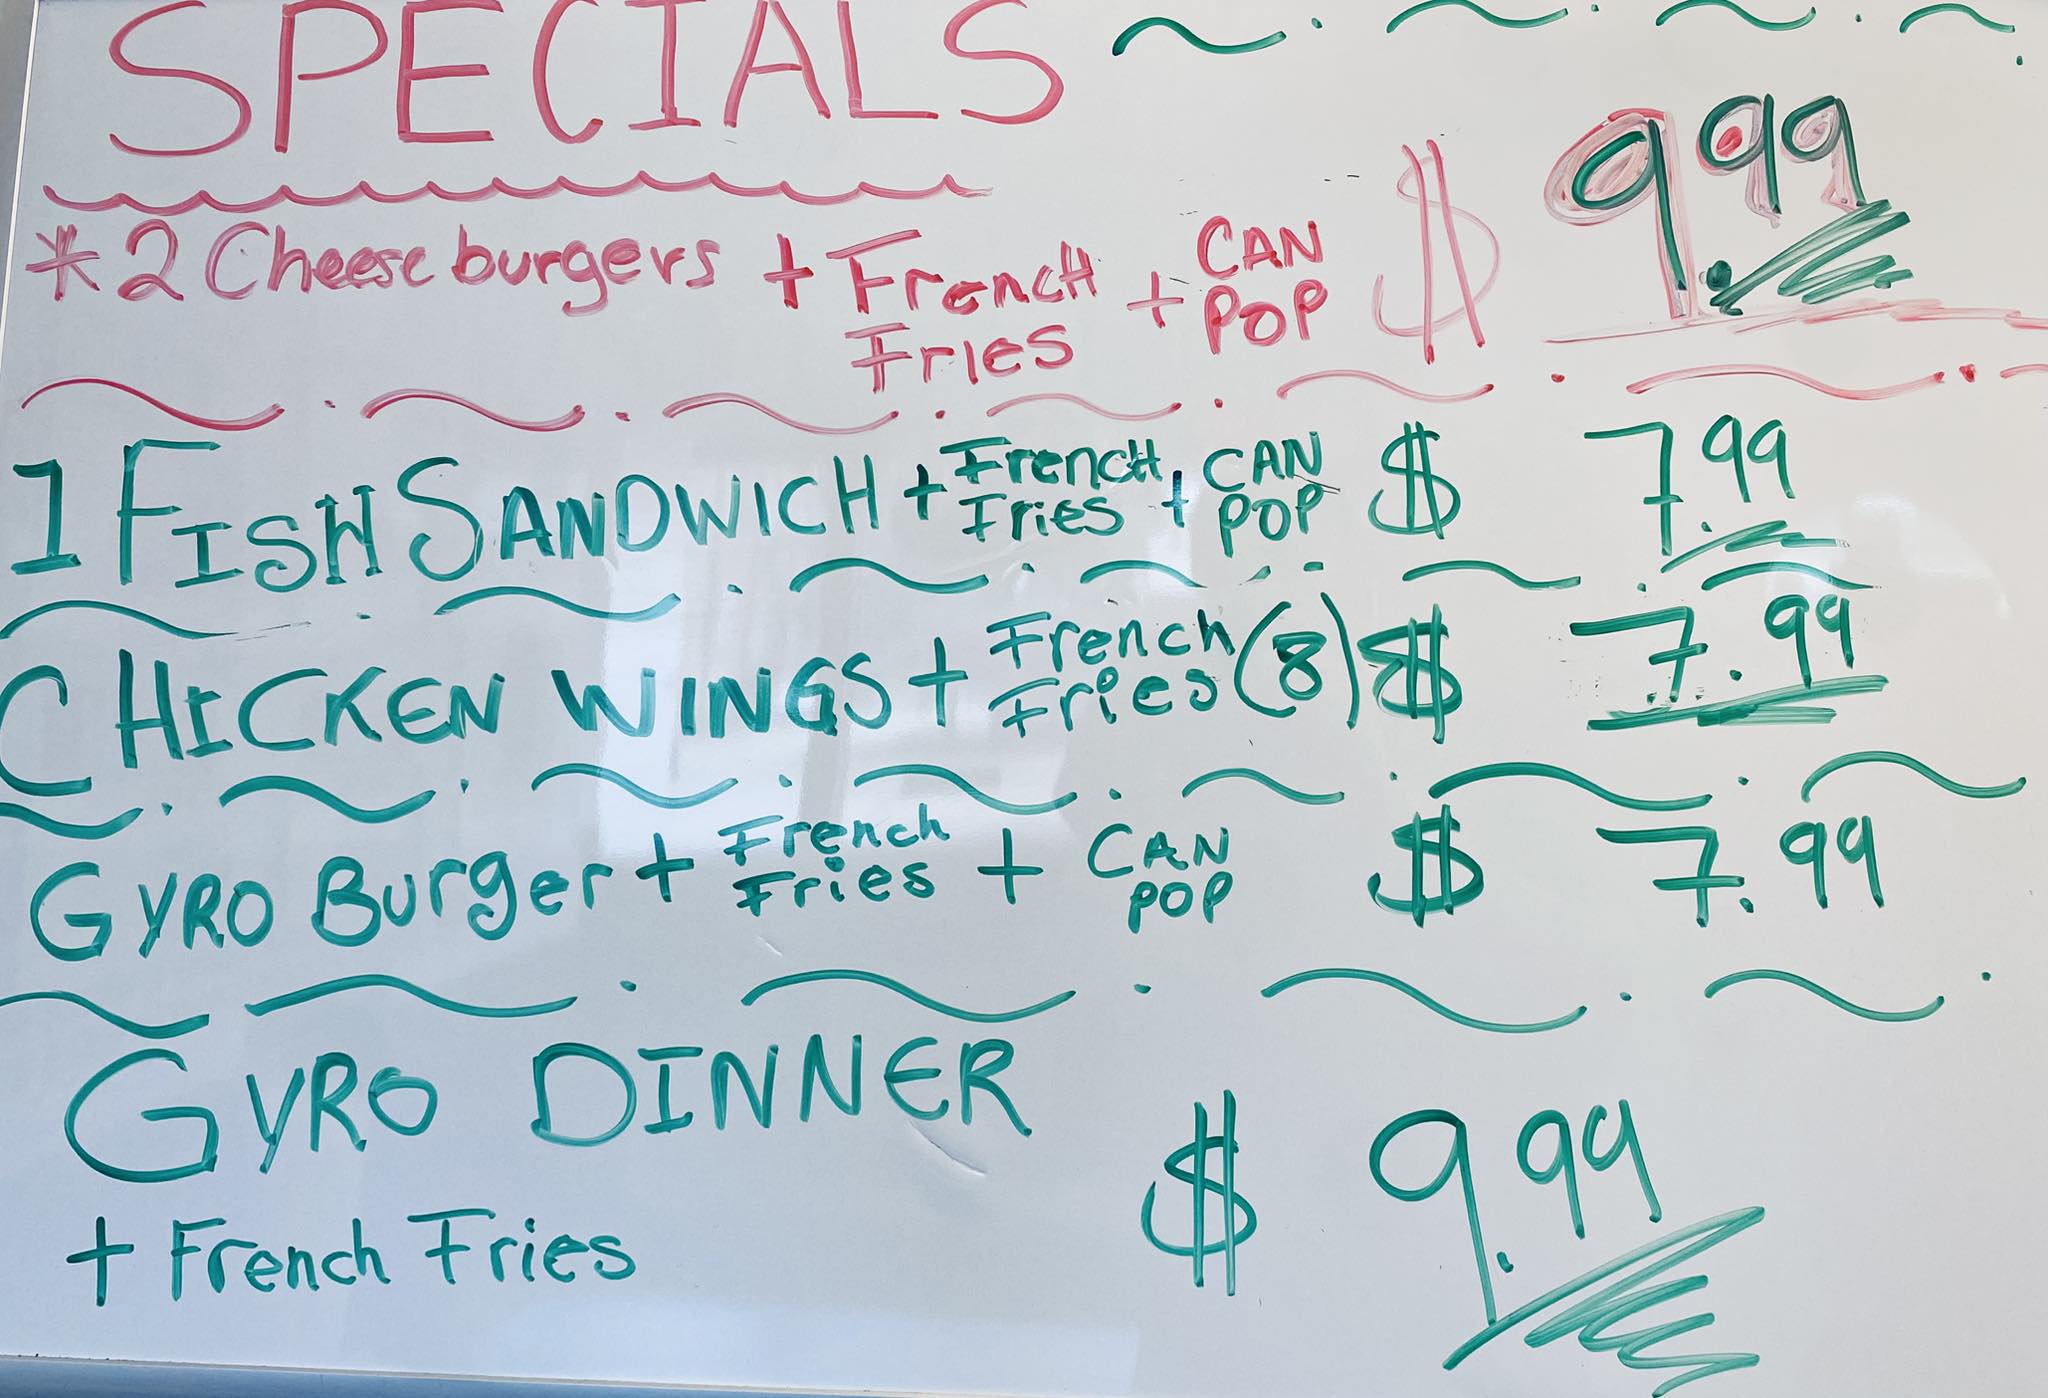 SPECIALS
* 2 Cheeseburgers + French Fries + CAN POP $ 9.99
1 FISH SANDWICH + French Fries + CAN POP $ 7.99
CHICKEN WINGS + French Fries (8) $ 7.99
GYRO Burger + French Fries + CAN POP $ 7.99
GYRO DINNER
+ French Fries $ 9.99